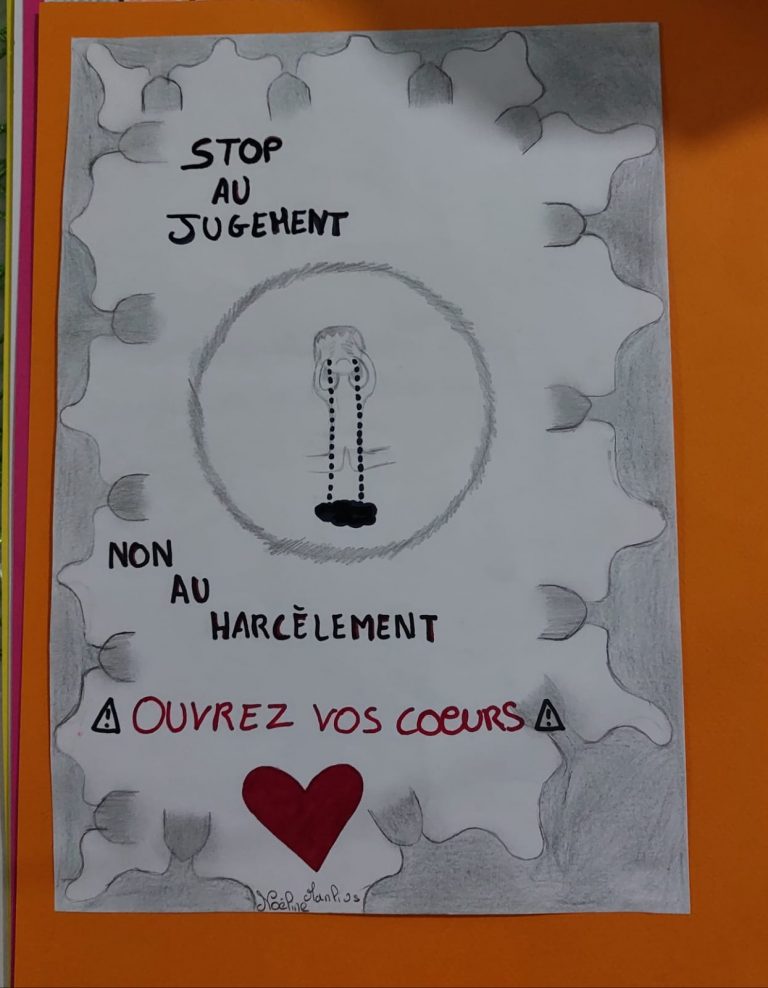 STOP
AU
JUGEMENT
NON
AU
HARCÈLEMENT
OUVREZ VOS COEURS
Noéline